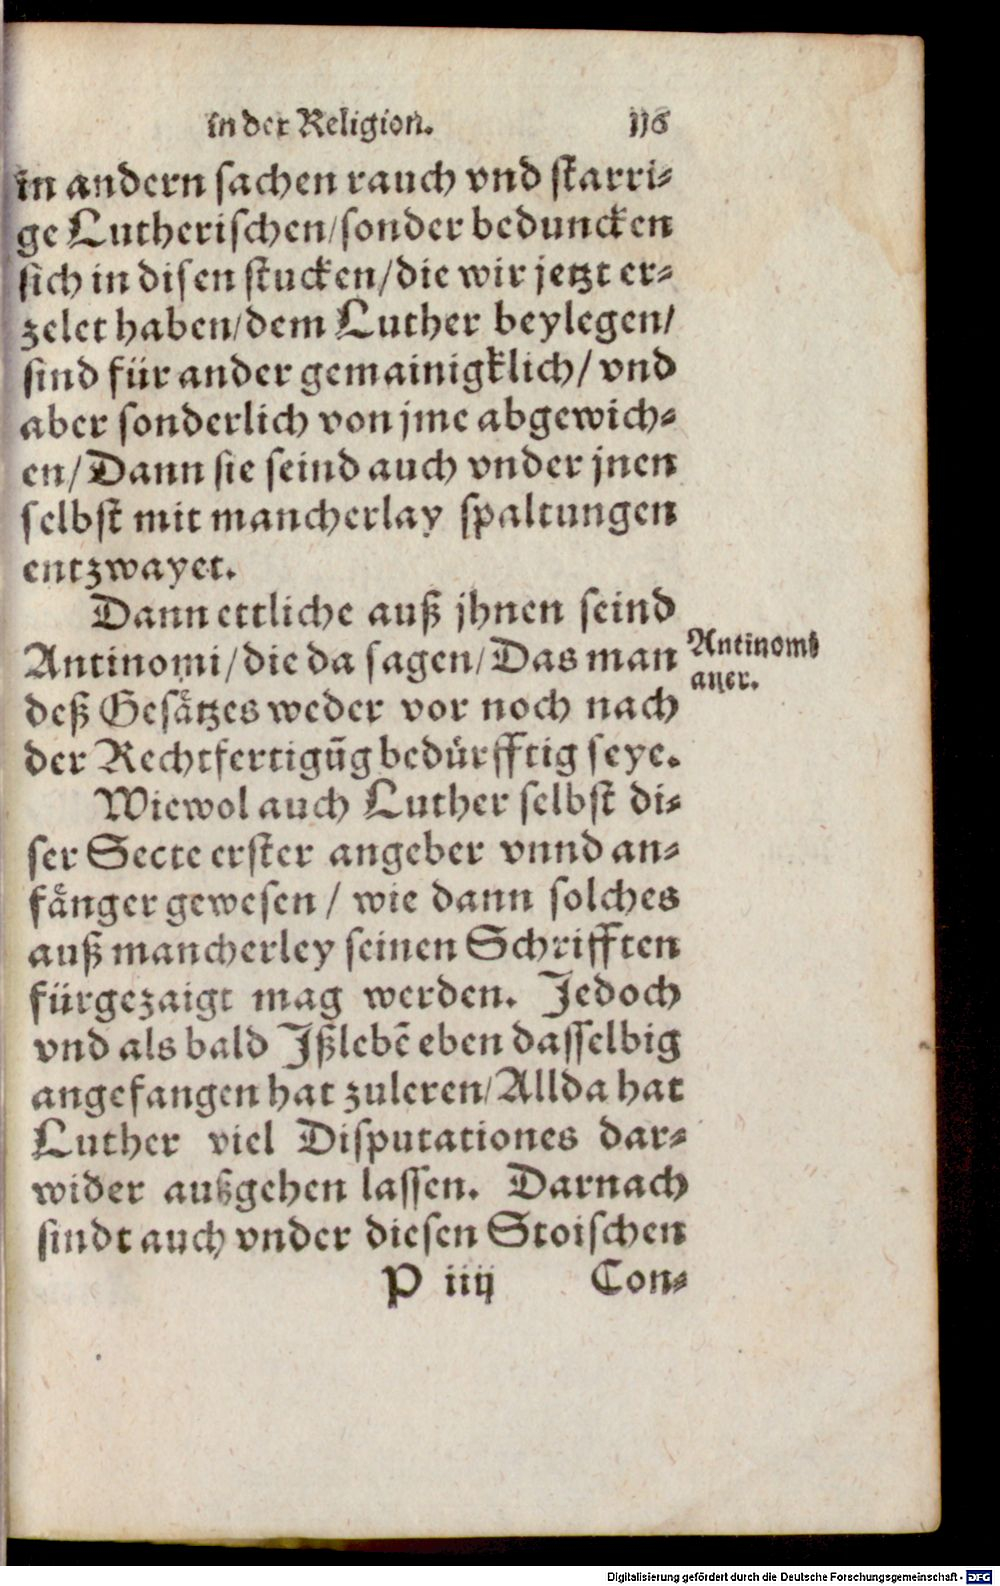 in der Religion. 116
in andern sachen rauch vnd starri⸗
ge Lutherischen/sonder beduncken
sich in disen stucken/die wir jetzt er⸗
zelet haben/dem Luther beylegen/
sind für ander gemainigklich/ vnd
aber sonderlich von jme abgewich⸗
en/Dann sie seind auch vnder jnen
selbst mit mancherlay spaltungen
entzwayet.
Dann ettliche auß jhnen seind
Antinomi/die da sagen/Das man
deß Gesätzes weder vor noch nach
der Rechtfertigūg bedürfftig seye.
Antinomi
aner.
Wiewol auch Luther selbst di⸗
ser Secte erster angeber vnnd an⸗
fänger gewesen / wie dann solches
auß mancherley seinen Schrifften
fürgezaigt mag werden. Jedoch
vnd als bald Jßlebē eben dasselbig
angefangen hat zuleren/Allda hat
Luther viel Disputationes dar⸗
wider außgehen lassen. Darnach
sindt auch vnder diesen Stoischen
P iiij Con⸗
Digitalisierung gefördert durch die Deutsche Forschungsgemeinschaft - DFG